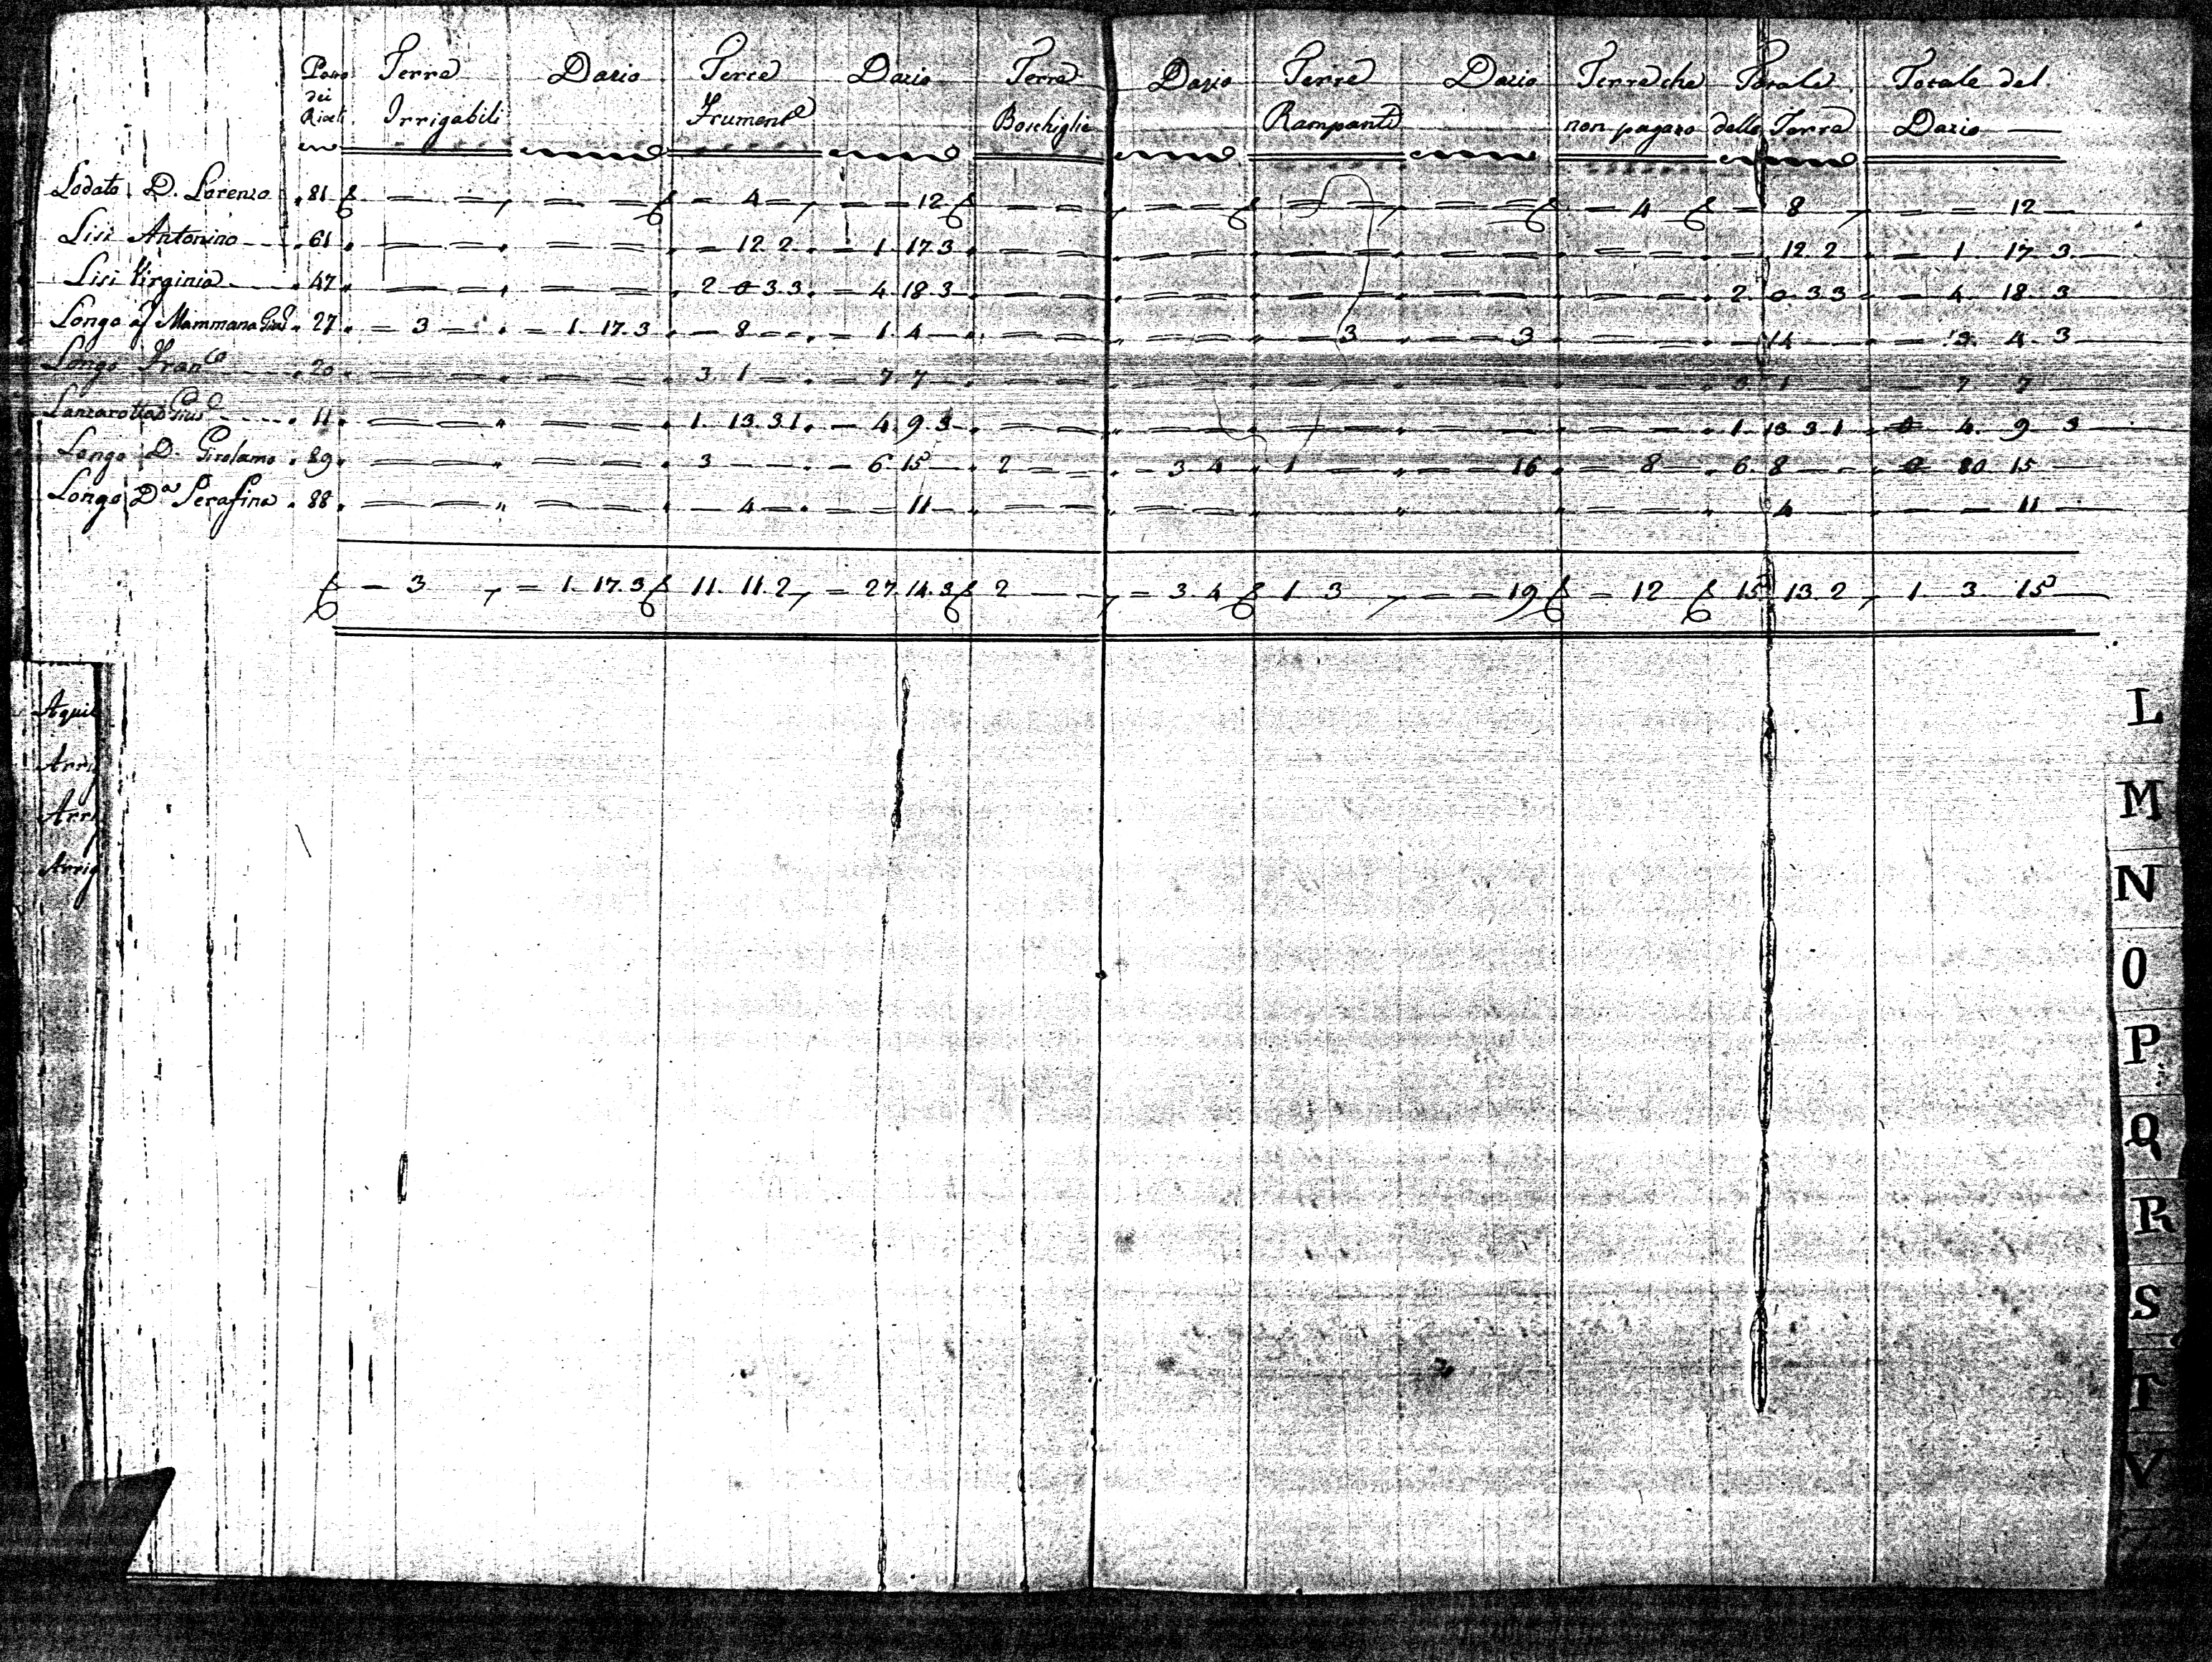 Terre Dazio Terre Dazio Terre Dazio Terre Dazio Terre che Totale Totale del
dei
Riveli Irrigabili Frument.e Boschiglie Rampanti non pagano delle Terre Dazio
Lodato D. Lorenzo 81 — — — — — 4 — — — 12 — — — — — — — — — 4 — — 8 — — — 12 —
Lisi Antonino 61 — — — — — 12. 2 — 1. 17. 3 — — — — — — — — — — — 12. 2 — 1 17 3
Lisi Virginia 47 — — — — 2 0 3. 3 — 4 18. 3 — — — — — — — — — — 2 0 3 3 — 4 18 3
Longo af Mammana 27 — 3 — — 1. 17. 3 — 8 — — 1. 4 — — — — — 3 — — 3 — — — 14 — 3 4 3
Longo Fran.co 20 — — — — 3. 1 — — 7 7 — — — — — — — — — — 3 1 — — 7 7
Lanzarotta 11 — — — — 1. 13. 3 1. — 4. 9. 3 — — — — — — — — — — 1 13 3 1 4 9 3
Longo D. Girolamo 89 — — — — 3 — — — 6 15 — 2 — — — 3 4 1 — — — 16 — 8 — 6 8 — — 80 15
Longo D.a Serafina 88 — — — — — 4 — — — 11 — — — — — — — — 4 — — — 11
— 3 — 1. 17. 3 11. 11. 2 — 27. 14. 3 2 — — 3. 4 1 3 — — 19 — 12 15 13 2 1 3 15
Aqui
Arri
Arri
Arrig
L
M
N
O
P
Q
R
S
T
V